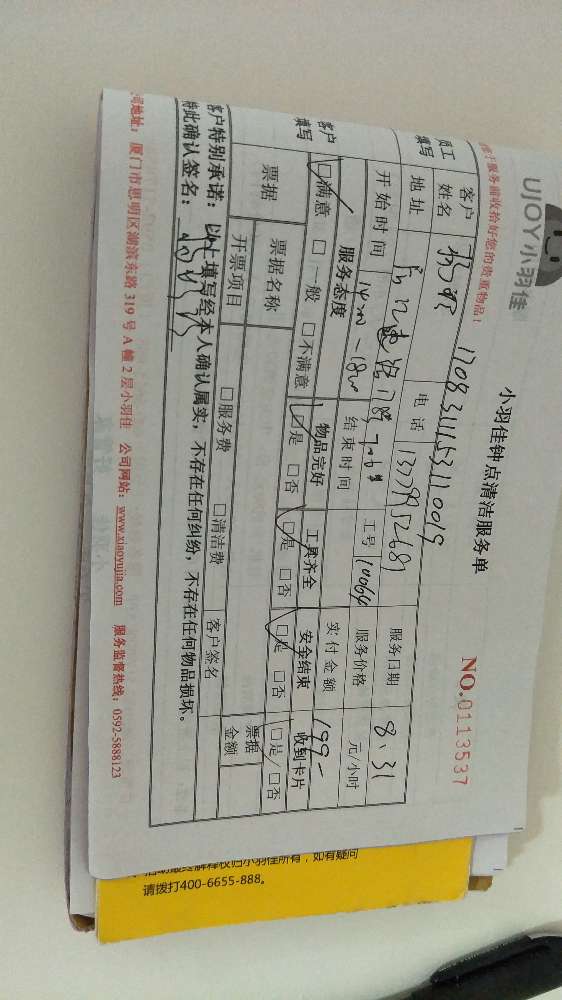 UJOY小羽佳
小羽佳钟点清洁服务单
NO.0113537
服务前收拾好您的贵重物品！
1708311153110019
员工填写
客户姓名 电话 服务日期 8.31
地址 工号 10064 服务价格 元/小时
开始时间 结束时间 实付金额 199-
客户填写
服务态度 物品完好 工具齐全 安全结束 收到卡片
□满意 □一般 □不满意 □是 □否 □是 □否 □是 □否 □是 □否
票据 票据名称 票据金额
开票项目 □服务费 □清洁费 客户签名
客户特别承诺：以上填写经本人确认属实，不存在任何纠纷，不存在任何物品损坏。
特此确认签名：
公司地址：厦门市思明区湖滨东路 319 号 A 幢 2 层小羽佳 公司网站：www.xiaoyujia.com 服务监督热线：0592-5888123
活动最终解释权归小羽佳所有，如有疑问
请拨打400-6655-888。